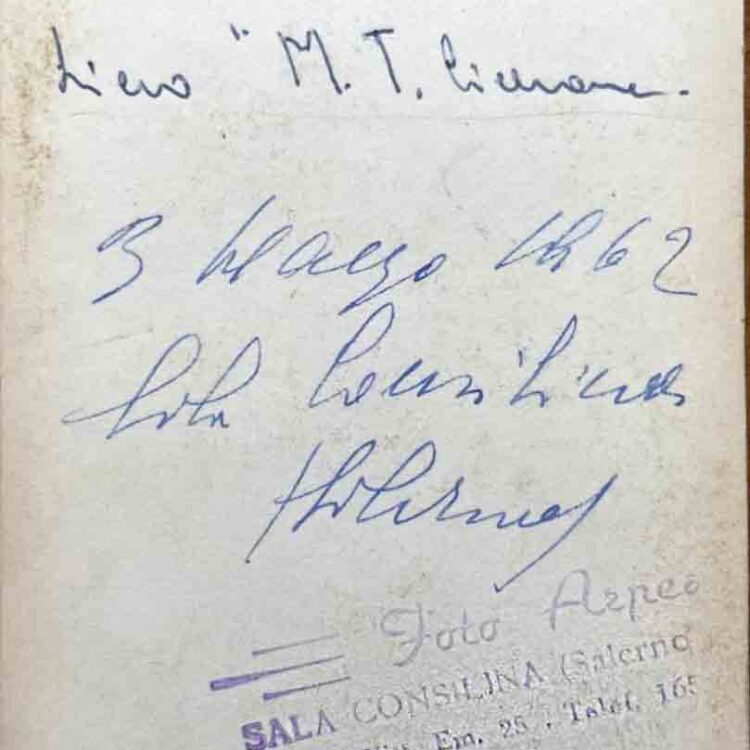 Liceo " M. T. Cicerone.
3 Marzo 1962
Sala Consilina
(Salerno)
Foto Arpeo
SALA CONSILINA (Salerno
Em. 28 . Telef. 165